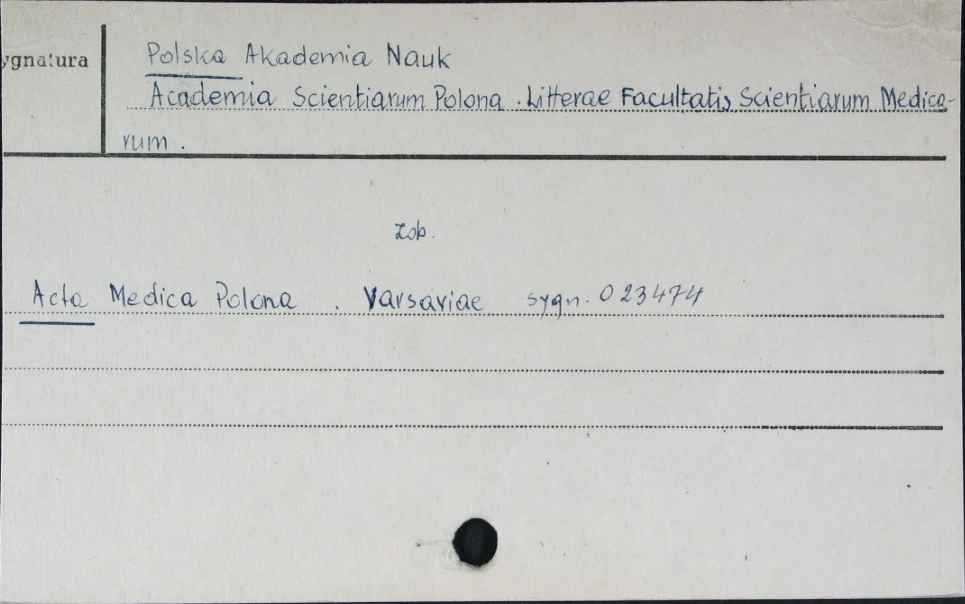 ygnatura
Polska Akademia Nauk
Academia Scientiarum Polona. Litterae Facultatis Scientiarum Medica-
rum.
zob.
Acta Medica Polona. Varsaviae sygn. 023474